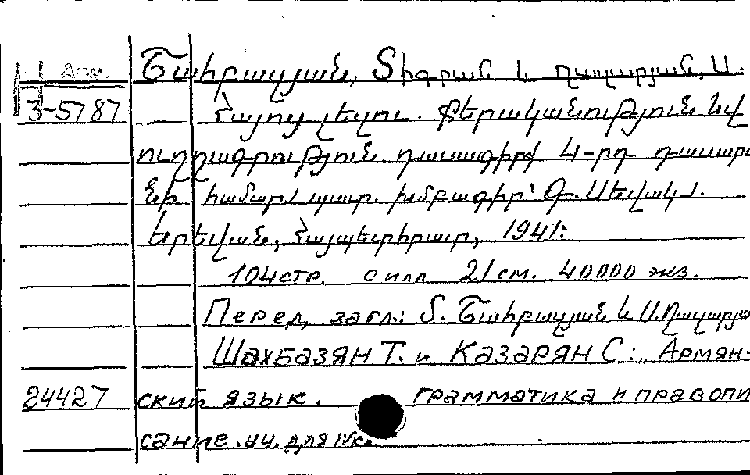 Շահբազյան, Տիգրան և Ղազարյան, Ս.
3-5787 Հայոց լեզու. քերականություն և
ուղղագրություն. դասագիրք 4-րդ դասարա
նի համար: պատ. խմբագիր՝ Գ. Սևակ:
Երևան, Հայպետհրատ, 1941:
104 стр. с илл 21 см. 40000 экз.
Перед. загл.: Տ. Շահբազյան և Ս. Ղազարյա
Шахбазян Т. и Казарян С: „Армян-
24427 ский язык. Грамматика и правопи
сание. уч. для IV к.